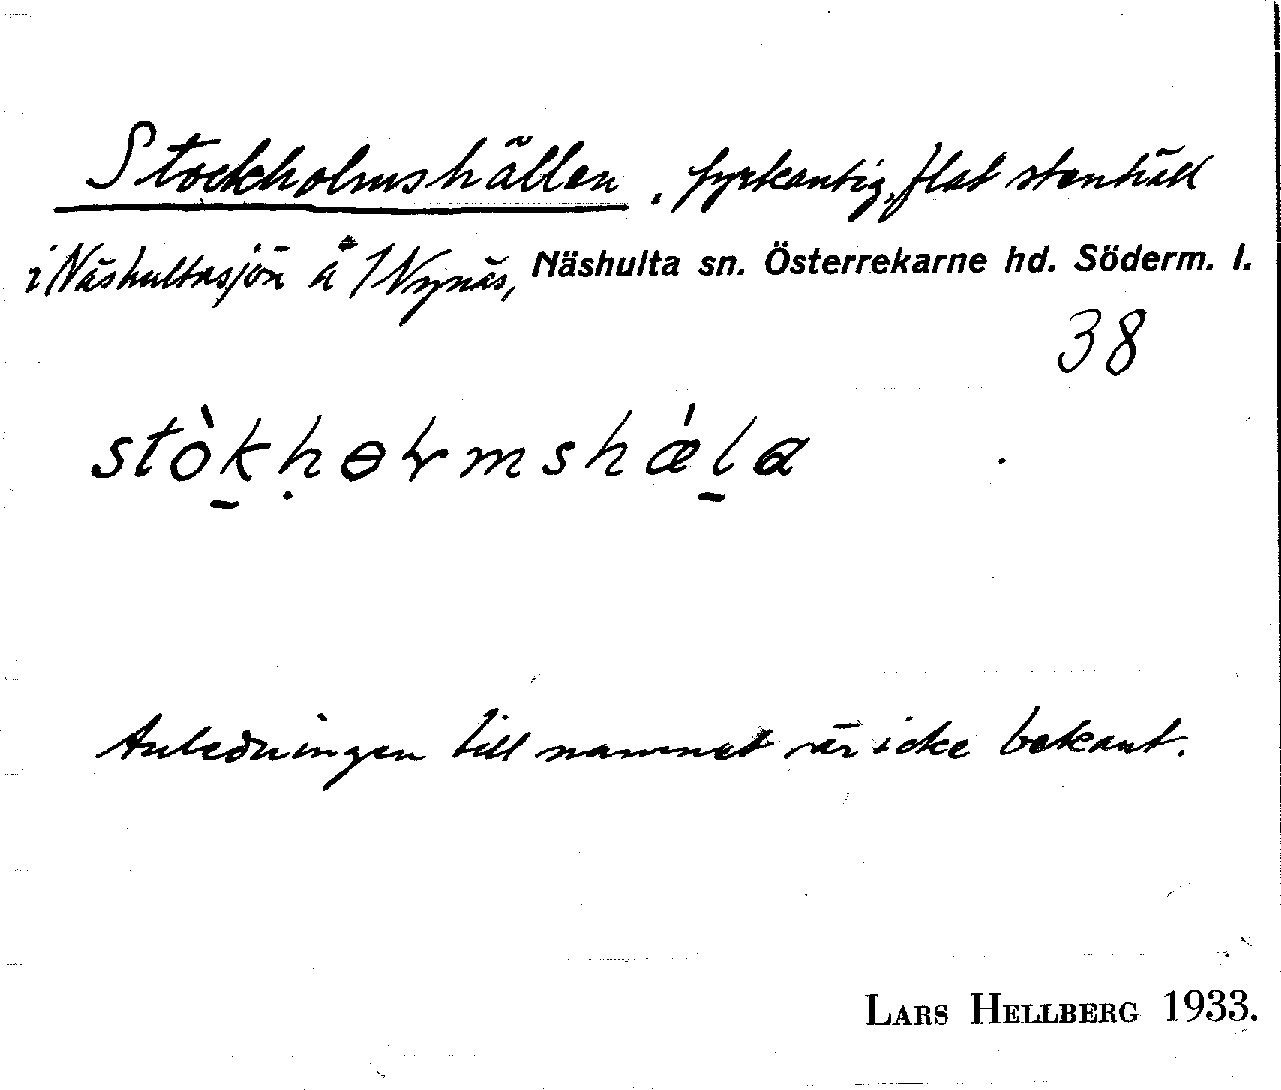 Stockholmshällen, fyrkantig, flat stenhäll
i Näshultasjön å Nynäs, Näshulta sn. Österrekarne hd. Söderm. l.
38
stòk̠ḥɵlrmshǽl̠a
Anledningen till namnet är icke bekant.
LARS HELLBERG 1933.